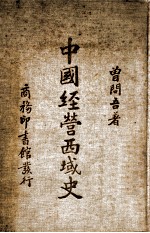 曾問吾著
中國經營西域史
商務印書館發行